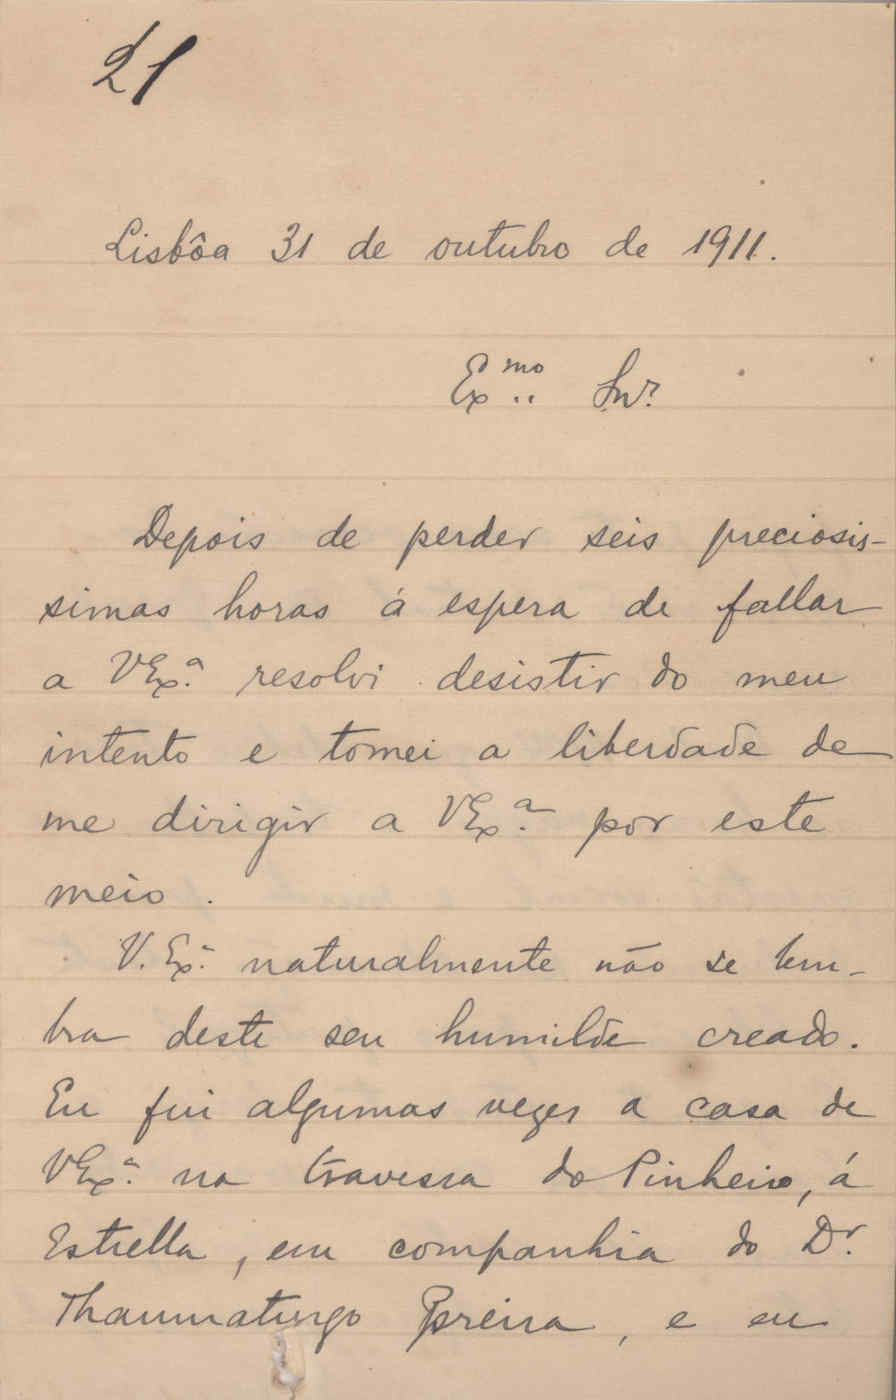 21
Lisbôa 31 de outubro de 1911.
Exmo Snr.
Depois de perder seis preciosis-
simas horas á espera de fallar
a VExa. resolvi desistir do meu
intento e tomei a liberdade de
me dirigir a VExa. por este
meio.
V. Exa. naturalmente não se lem-
bra deste seu humilde creado.
Eu fui algumas vezes a casa de
VExa. na travessa do Pinheiro, á
Estrella, em companhia do Dr.
Thaumaturgo Pereira, e eu